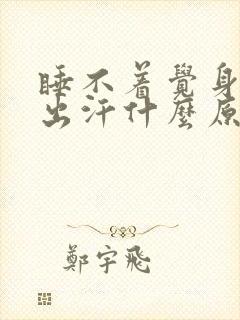 睡不着覺身
出汗什麼原
鄭宇飛